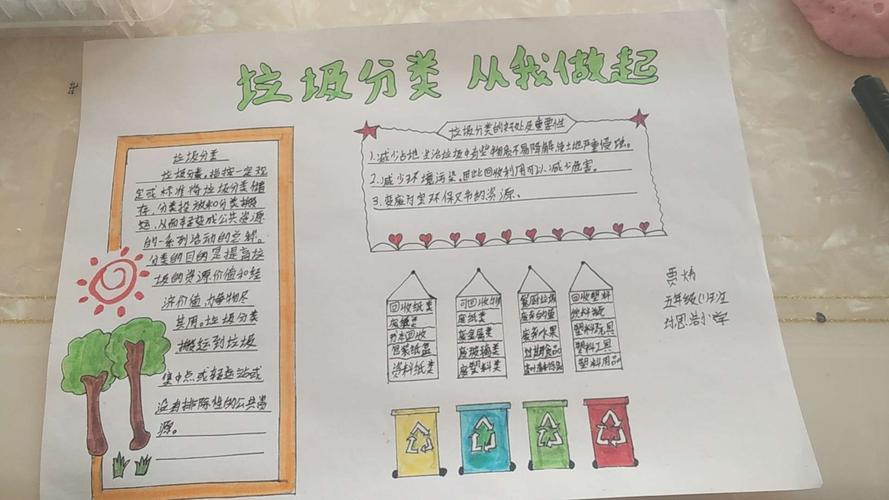 垃圾分类 从我做起
垃圾分类
垃圾分类，指按一定规
定或标准将垃圾分类储
存、分类投放和分类搬
运，从而转变成公共资源
的一系列活动的总称。
分类的目的是提高垃
圾的资源价值和经
济价值，力争物尽
其用。垃圾分类
搬运到垃圾
集中点或转运站或
没有排除性的公共资
源。
垃圾分类的好处及重要性
1.减少占地 生活垃圾中有些物质不易降解使土地严重侵蚀。
2.减少环境污染，因此回收利用可以减少危害。
3.变废为宝 环保又节约资源。
回收纸类
废纸品
书本回收
包装纸盒
资料纸类
可回收物
废纸类
废金属类
废玻璃类
废塑料类
餐厨垃圾
废弃水果
过期食品
回收塑料
塑料玩具
塑料工具
塑料用品
贾
五年级(1)班
小学